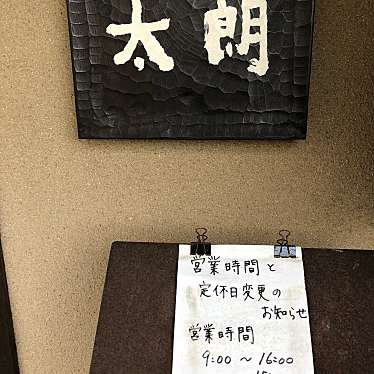 太朗
営業時間と
定休日変更の
お知らせ
営業時間
9:00 〜 16:00